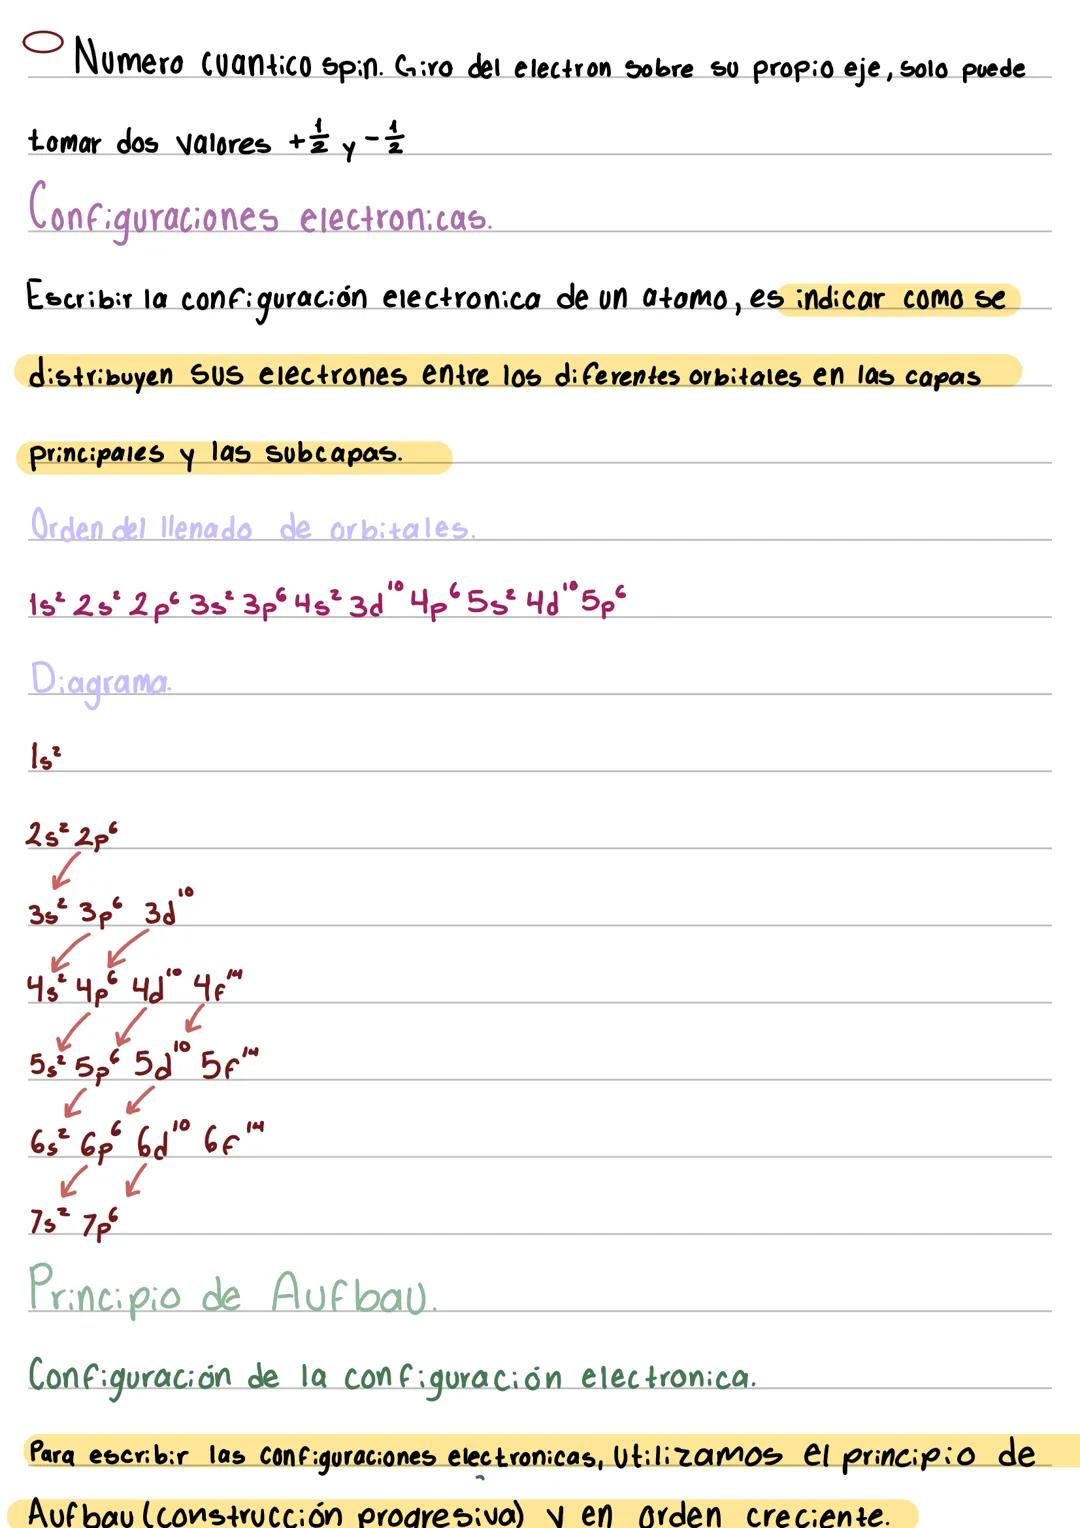 Numero cuantico spin. Giro del electron sobre su propio eje, solo puede
tomar dos valores +1/2 y -1/2
Configuraciones electronicas.
Escribir la configuración electronica de un atomo, es indicar como se
distribuyen sus electrones entre los diferentes orbitales en las capas
principales y las subcapas.
Orden del llenado de orbitales.
1s² 2s² 2p⁶ 3s² 3p⁶ 4s² 3d¹⁰ 4p⁶ 5s² 4d¹⁰ 5p⁶
Diagrama.
1s²
2s² 2p⁶
3s² 3p⁶ 3d¹⁰
4s² 4p⁶ 4d¹⁰ 4f¹⁴
5s² 5p⁶ 5d¹⁰ 5f¹⁴
6s² 6p⁶ 6d¹⁰ 6f¹⁴
7s² 7p⁶
Principio de Aufbau.
Configuración de la configuración electronica.
Para escribir las configuraciones electronicas, utilizamos el principio de
Aufbau (construcción progresiva) y en orden creciente.